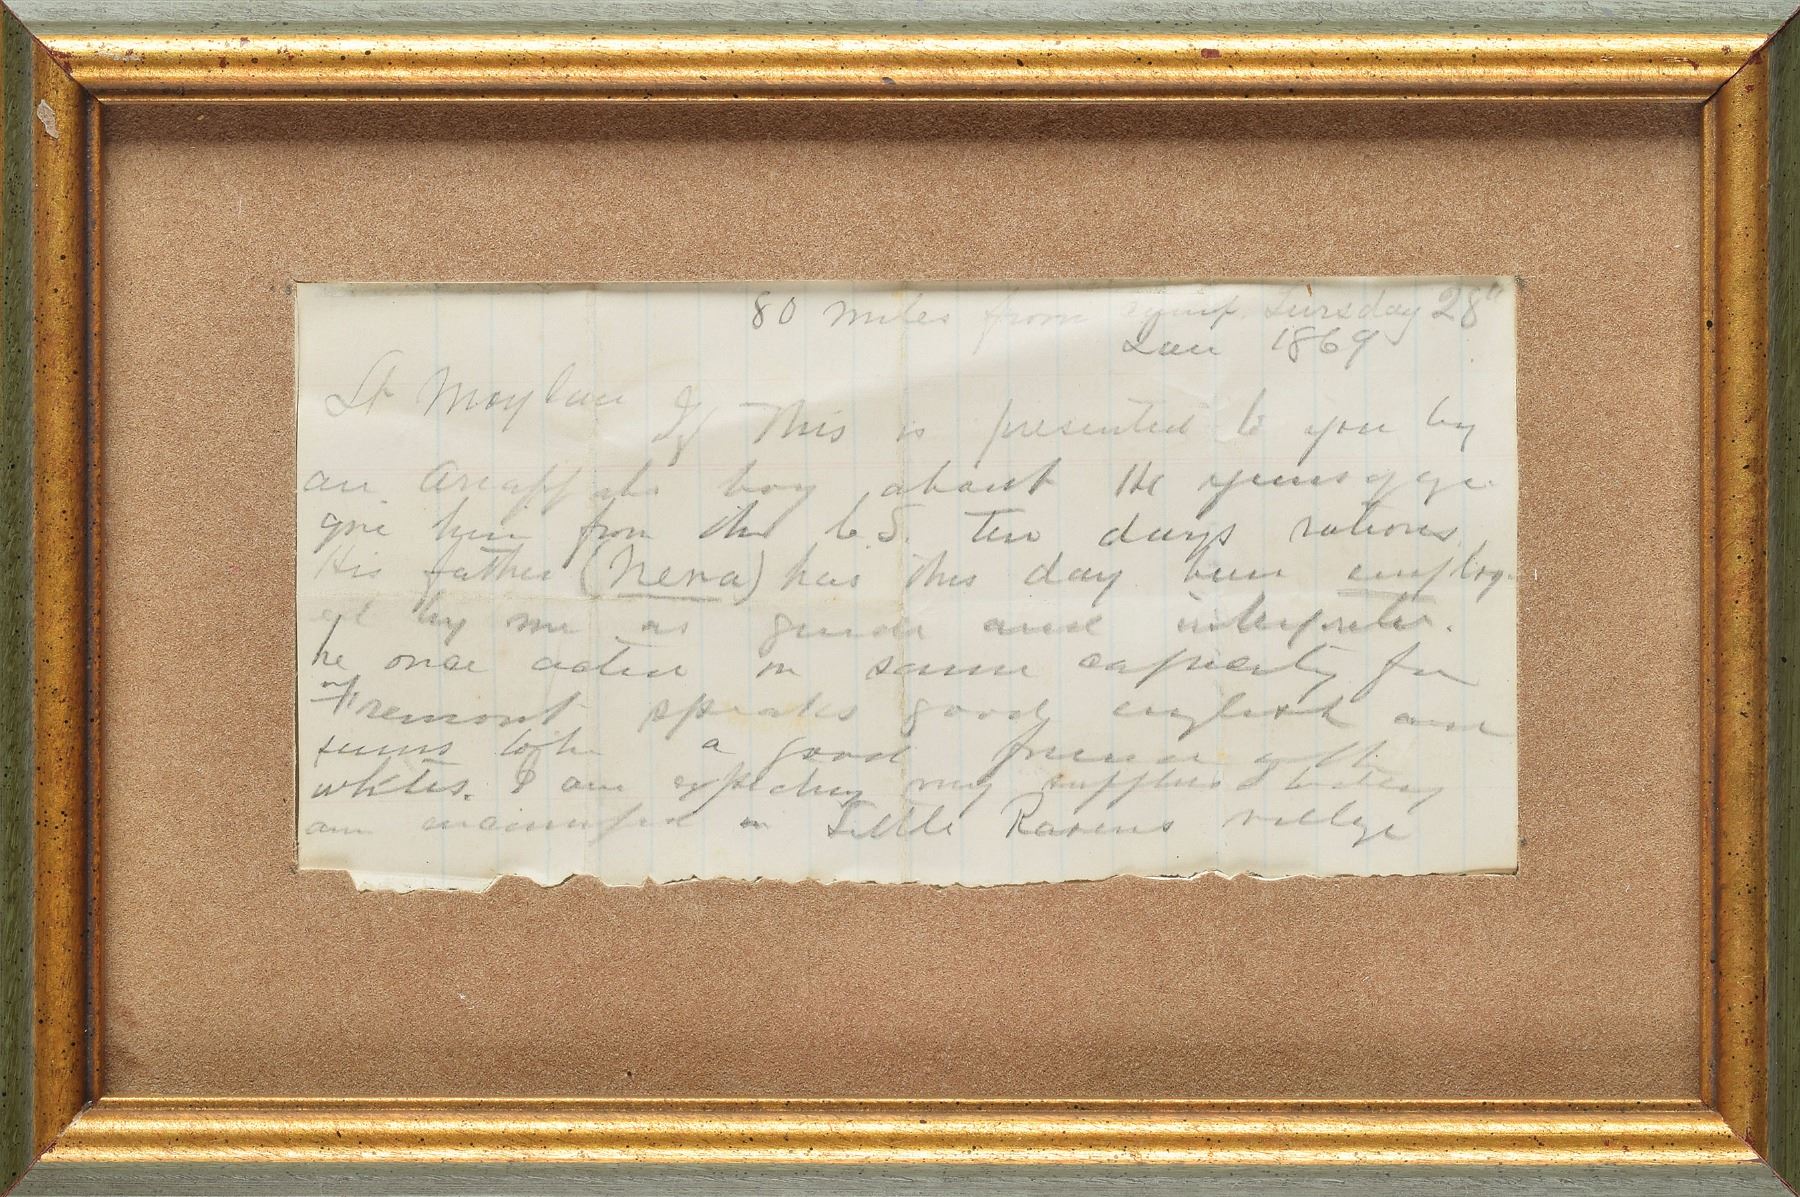 80 miles from camp. Tuesday 28"
Jan 1869
Lt Moylan If This is presented to you by
an Arrappaho boy about 14 years of age
give him from the C.S. ten days rations.
His father (Neva) has this day been employ-
ed by me as guide and interpreter.
he once acted in same capacity for
Fremont speaks good english and
seems to be a good friend of the
whites. I am expecting my supplies today
am encamped in Little Ravens village